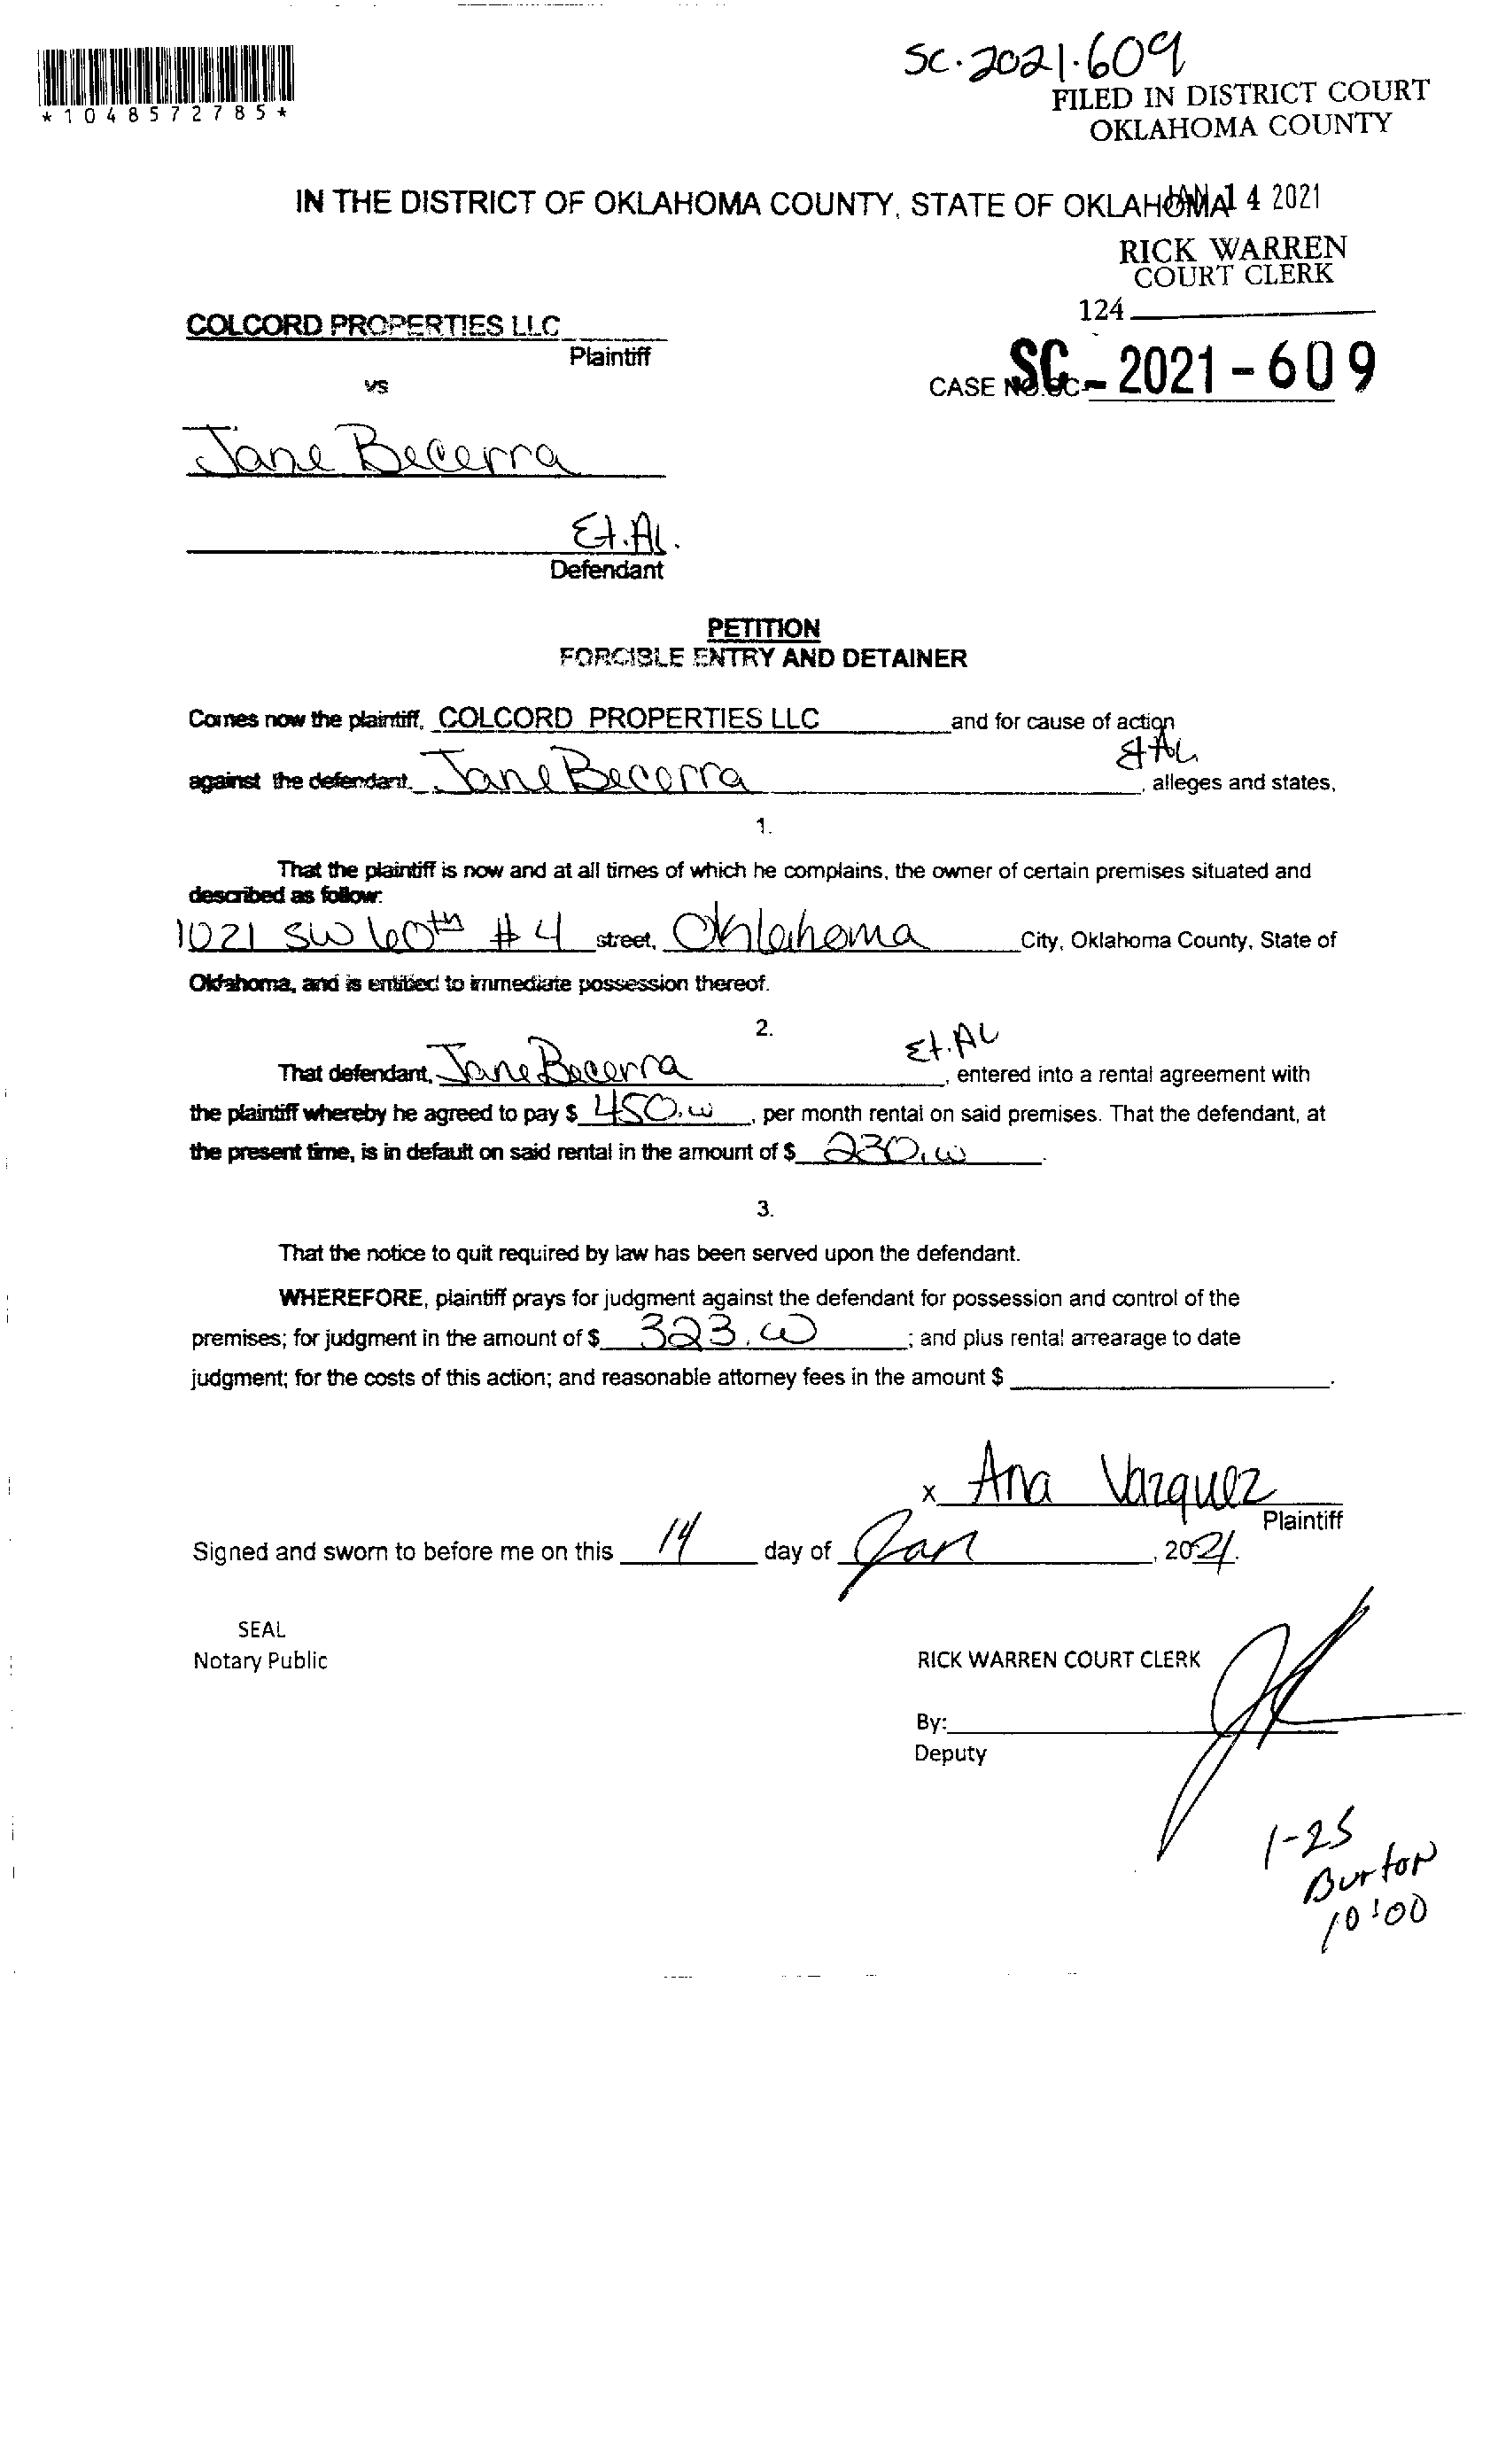 SC.2021.609
FILED IN DISTRICT COURT
OKLAHOMA COUNTY
*1048572785*
IN THE DISTRICT OF OKLAHOMA COUNTY, STATE OF OKLAHOMA
JAN 14 2021
RICK WARREN
COURT CLERK
124
COLCORD PROPERTIES LLC
Plaintiff
vs
CASE NO. SC-
SC - 2021 - 609
Jane Becerra
Et.Al.
Defendant
PETITION
FORCIBLE ENTRY AND DETAINER
Comes now the plaintiff, COLCORD PROPERTIES LLC and for cause of action
against the defendant, Jane Becerra Et AL, alleges and states,
1.
That the plaintiff is now and at all times of which he complains, the owner of certain premises situated and
described as follow:
1021 SW 60th #4 street, Oklahoma City, Oklahoma County, State of
Oklahoma, and is entitled to immediate possession thereof.
2.
That defendant, Jane Becerra Et.AL, entered into a rental agreement with
the plaintiff whereby he agreed to pay $ 450.00, per month rental on said premises. That the defendant, at
the present time, is in default on said rental in the amount of $ 230.00.
3.
That the notice to quit required by law has been served upon the defendant.
WHEREFORE, plaintiff prays for judgment against the defendant for possession and control of the
premises; for judgment in the amount of $ 323.00; and plus rental arrearage to date
judgment; for the costs of this action; and reasonable attorney fees in the amount $ .
x Ana Vazquez
Plaintiff
Signed and sworn to before me on this 14 day of Jan, 2021.
SEAL
Notary Public
RICK WARREN COURT CLERK
By:
Deputy
1-25
Burton
10:00